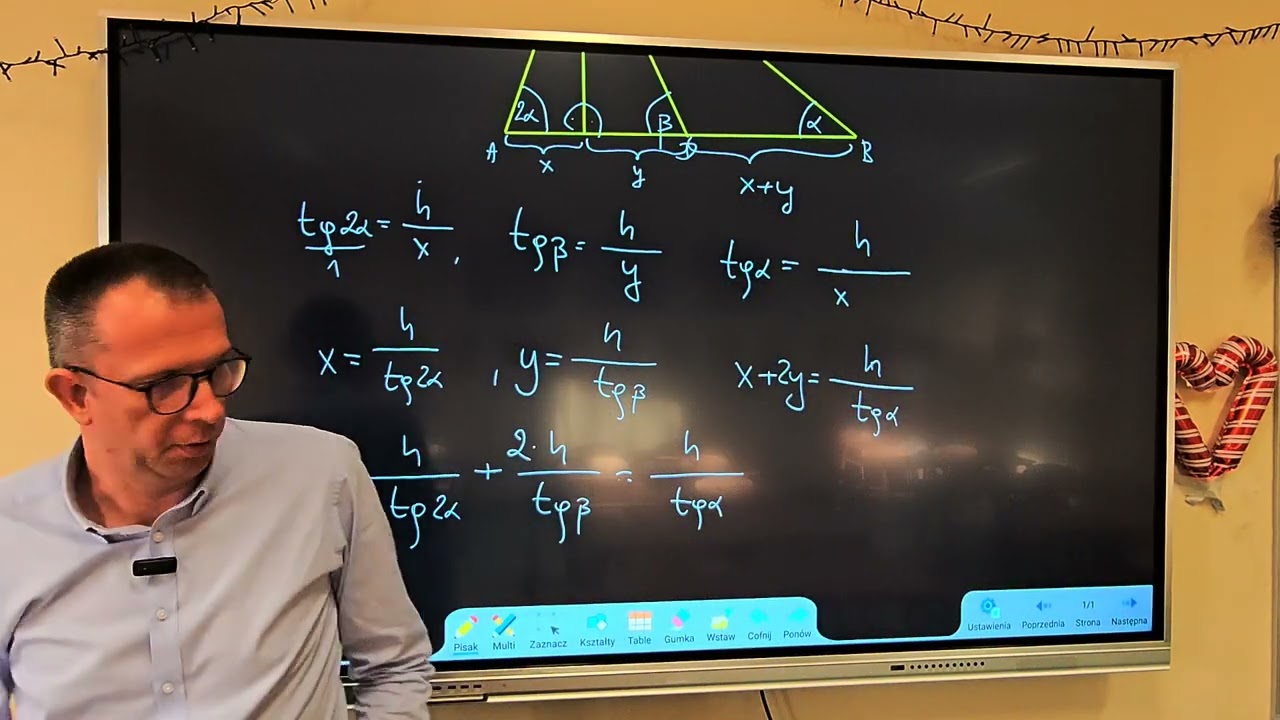 2α β α
A D B
x y x+y
tg2α = h/x , tgβ = h/y tgα = h/x
1
x = h/tg2α , y = h/tgβ x+2y = h/tgα
h/tg2α + 2·h/tgβ = h/tgα
Pisak Multi Zaznacz Kształty Table Gumka Wstaw Cofnij Ponów
Ustawienia Poprzednia 1/1 Strona Następna